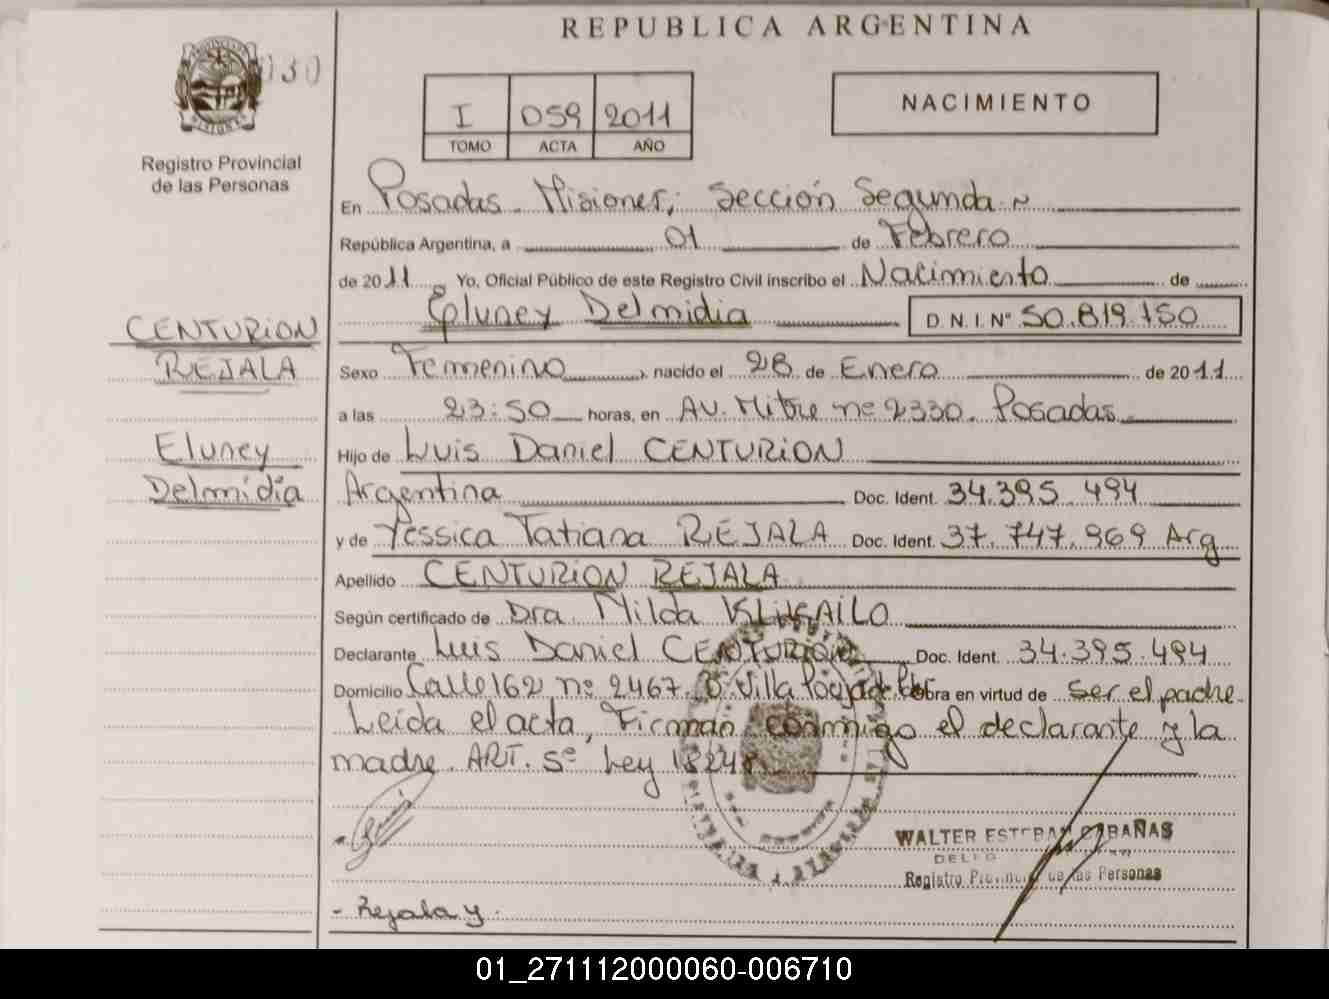 REPUBLICA ARGENTINA
030
Registro Provincial
de las Personas
I 059 2011
TOMO ACTA AÑO
NACIMIENTO
En Posadas. Misiones; Sección Segunda
República Argentina, a 01 de Febrero
de 2011 Yo, Oficial Público de este Registro Civil inscribo el Nacimiento de
Eluney Delmidia D.N.I. Nº 50.819.150
CENTURION
REJALA
Eluney
Delmidia
Sexo Femenino, nacido el 28 de Enero de 2011
a las 23:50 horas, en AV. Mitre nº 2330. Posadas
Hijo de Luis Daniel CENTURION
Argentina Doc. Ident. 34.395.494
y de Yessica Tatiana REJALA Doc. Ident. 37.747.969 Arg
Apellido CENTURION REJALA
Según certificado de Dra. Milda
Declarante Luis Daniel CENTURION Doc. Ident. 34.395.494
Domicilio Calle 162 nº 2467. Bº Villa Poujade Obra en virtud de ser el padre.
Leída el acta, Firman conmigo el declarante y la
madre. ART. 5º Ley 18248
WALTER ESTEBAN CABAÑAS
Registro Provincial de las Personas
- Rejala y.
01_271112000060-006710